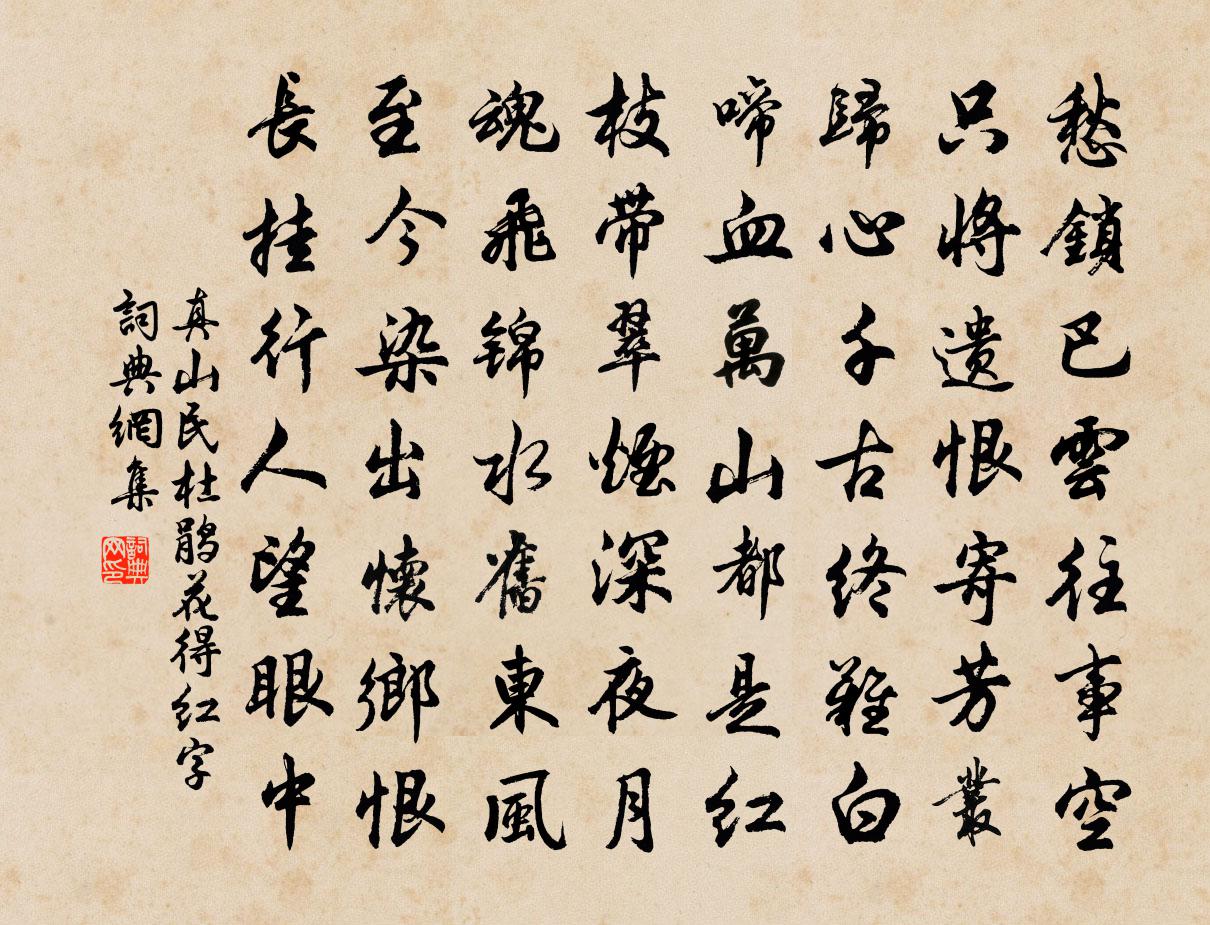 愁鎖巴雲往事空
只將遺恨寄芳叢
歸心千古終難白
啼血萬山都是紅
枝帶翠煙深夜月
魂飛錦水舊東風
至今染出懷鄉恨
長挂行人望眼中
真山民杜鵑花得紅字
詞典網集
詞典网印